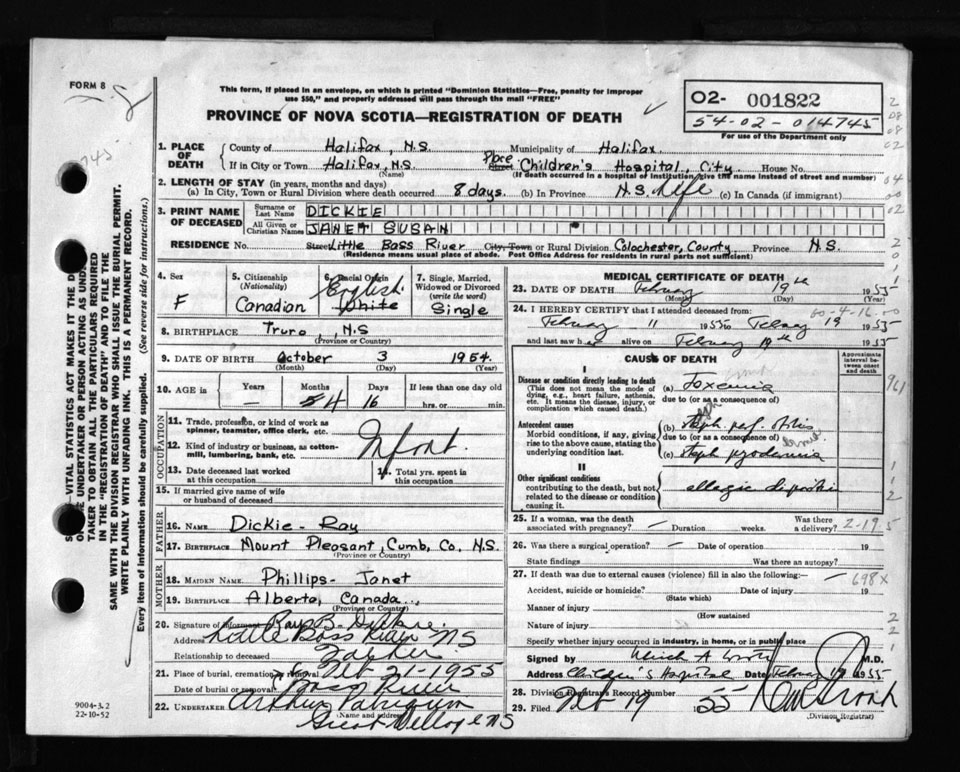 FORM 8
This form, if placed in an envelope, on which is printed "Dominion Statistics—Free, penalty for improper
use $50," and properly addressed will pass through the mail "FREE"
PROVINCE OF NOVA SCOTIA—REGISTRATION OF DEATH
O2- 001822
54-02-014745
For use of the Department only
1. PLACE OF DEATH
County of Halifax, N.S. Municipality of Halifax.
If in City or Town Halifax, N.S. Place Street Children's Hospital, City House No.
(Name) (If death occurred in a hospital of institution, give the name instead of street and number)
2. LENGTH OF STAY (in years, months and days)
(a) In City, Town or Rural Division where death occurred 8 days. (b) In Province N.S. Life (c) In Canada (if immigrant)
3. PRINT NAME OF DECEASED
Surname or Last Name DICKIE
All Given or Christian Names JANET SUSAN
RESIDENCE No. Street Little Bass River City, Town or Rural Division Colochester, County Province N.S.
(Residence means usual place of abode. Post Office Address for residents in rural parts not sufficient)
4. Sex F
5. Citizenship (Nationality) Canadian
6. Racial Origin English White
7. Single, Married, Widowed or Divorced (write the word) Single
8. BIRTHPLACE Truro, N.S
(Province or Country)
9. DATE OF BIRTH October 3 1954
(Month) (Day) (Year)
10. AGE in Years — Months 4 Days 16 If less than one day old
hrs. or min.
OCCUPATION
11. Trade, profession, or kind of work as spinner, teamster, office clerk, etc.
12. Kind of industry or business, as cotton-mill, lumbering, bank, etc.
Infant.
13. Date deceased last worked at this occupation
14. Total yrs. spent in this occupation
15. If married give name of wife or husband of deceased
FATHER
16. NAME Dickie - Ray
17. BIRTHPLACE Mount Pleasant, Cumb, Co, N.S.
(Province or Country)
MOTHER
18. MAIDEN NAME Phillips - Janet
19. BIRTHPLACE Alberta, Canada.
(Province or Country)
20. Signature of informant Ray B. Dickie.
Address Little Bass River NS
Relationship to deceased Father
21. Place of burial, cremation or removal
Date of burial or removal Feb 21-1955
Bass River
22. UNDERTAKER Arthur
(Name and address) Great Village NS
MEDICAL CERTIFICATE OF DEATH
23. DATE OF DEATH February 19th 1955
(Month) (Day) (Year)
24. I HEREBY CERTIFY that I attended deceased from:
February 11 1955 to February 19 1955
and last saw her alive on February 19th 1955
CAUSE OF DEATH
Approximate interval between onset and death
I
Disease or condition directly leading to death
(This does not mean the mode of dying, e.g., heart failure, asthenia, etc. It means the disease, injury, or complication which caused death.)
(a) Toxemia
due to (or as a consequence of)
Antecedent causes
Morbid conditions, if any, giving rise to the above cause, stating the underlying condition last.
(b) staph.
due to (or as a consequence of)
(c) staph pyodermia
II
Other significant conditions
contributing to the death, but not related to the disease or condition causing it.
25. If a woman, was the death associated with pregnancy? — Duration weeks. Was there a delivery?
26. Was there a surgical operation? — Date of operation 19
State findings Was there an autopsy?
27. If death was due to external causes (violence) fill in also the following:—
698x
Accident, suicide or homicide? Date of injury 19
(State which)
Manner of injury
(How sustained
Nature of injury
Specify whether injury occurred in industry, in home, or in public place
Signed by M.D.
Address Children's Hospital Date February 19 1955
28. Division Registrar's Record Number
29. Filed Feb 19 1955
(Division Registrar)
VITAL STATISTICS ACT MAKES IT THE
UNDERTAKER OR PERSON ACTING AS
TAKER TO OBTAIN ALL THE PARTICULARS REQUIRED
IN THE "REGISTRATION OF DEATH" AND TO FILE THE
SAME WITH THE DIVISION REGISTRAR WHO SHALL ISSUE THE BURIAL PERMIT.
WRITE PLAINLY WITH UNFADING INK. THIS IS A PERMANENT RECORD.
Every item of information should be carefully supplied. (See reverse side for instructions.)
9004-3.2
22-10-52